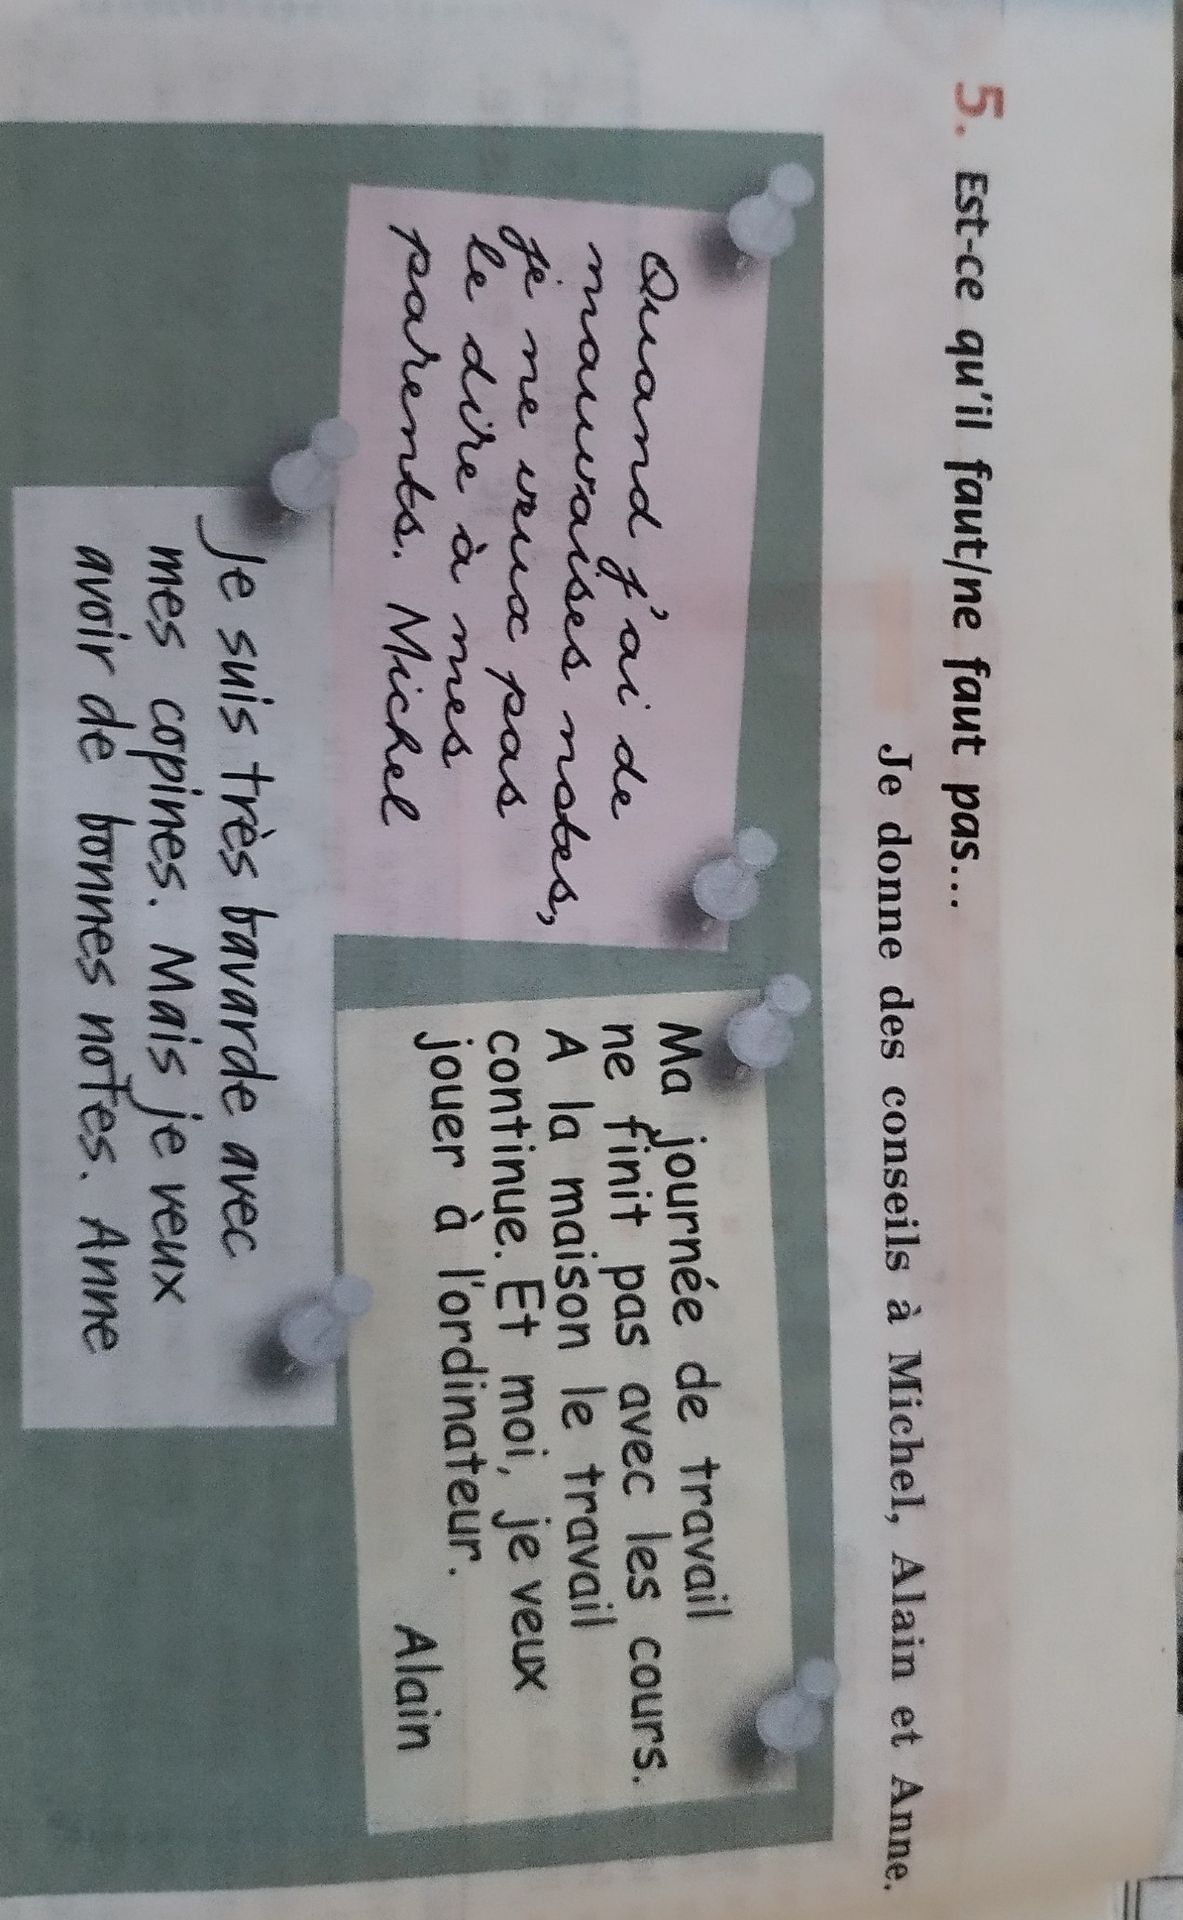 5. Est-ce qu'il faut/ne faut pas...
Je donne des conseils à Michel, Alain et Anne.
Quand j'ai de
mauvaises notes,
je ne veux pas
le dire à mes
parents. Michel
Ma journée de travail
ne finit pas avec les cours.
A la maison le travail
continue. Et moi, je veux
jouer à l'ordinateur.
Alain
Je suis très bavarde avec
mes copines. Mais je veux
avoir de bonnes notes. Anne